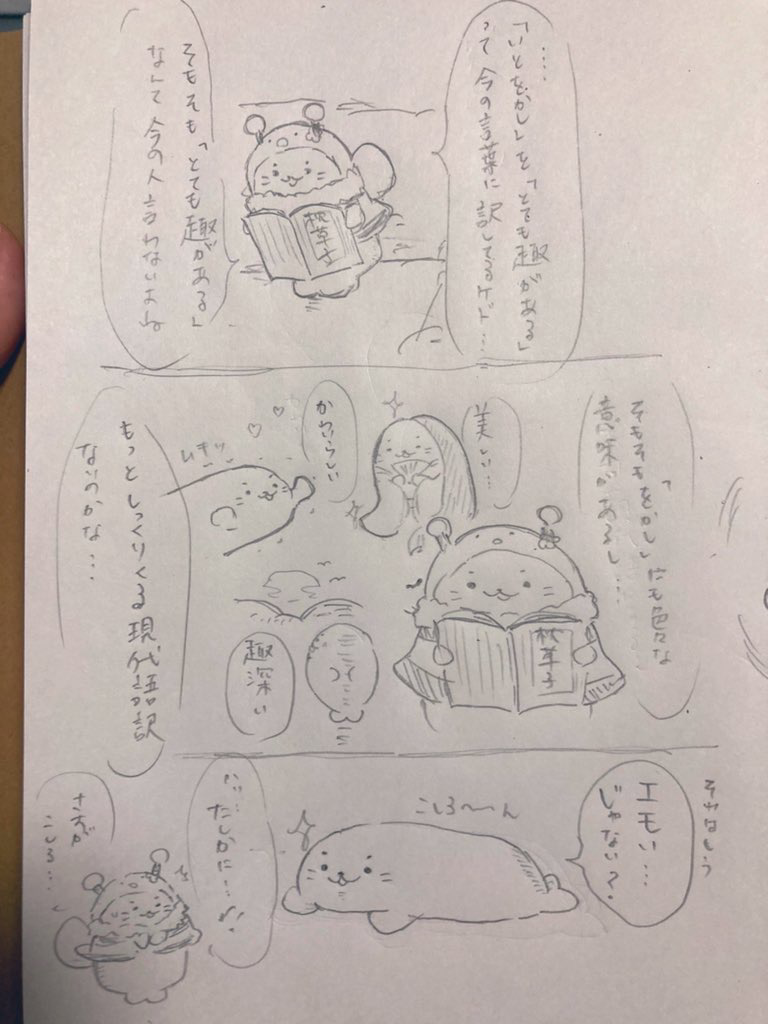 …
「いとをかし」を「とても趣がある」
って今の言葉に訳してるケド…
枕草子
そもそも「とても趣がある」
なんて今の人言わないよね
そもそも「をかし」にも色々な
意味があるし…
枕草子
美しい…
かわいらしい
ムギッ
趣深い
もっとしっくりくる現代語訳
ないのかな…
エモい…
じゃない?
こしろ〜〜ん
…たしかに…
さすが
こしろ…